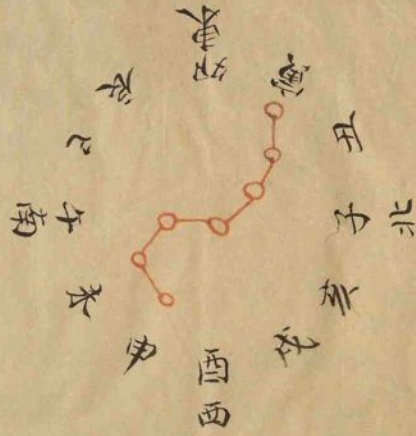 北
子
丑
寅
東
卯
辰
巳
午
南
未
申
酉
西
戌
亥